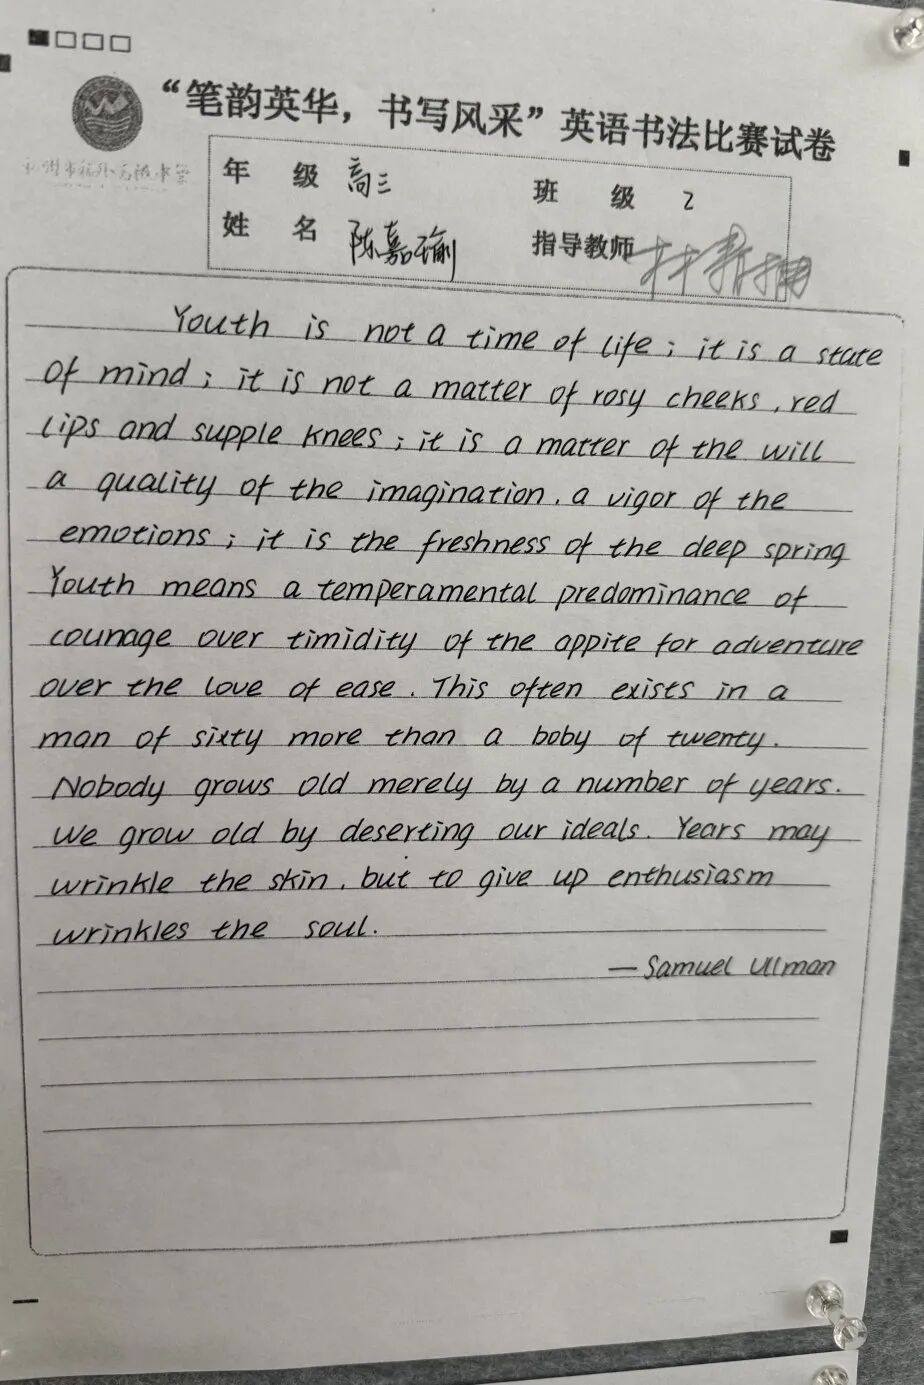 “笔韵英华，书写风采”英语书法比赛试卷
年 级 高三 班 级 2
姓 名 陈嘉瑜 指导教师
Youth is not a time of life ; it is a state
of mind ; it is not a matter of rosy cheeks , red
lips and supple knees ; it is a matter of the will
a quality of the imagination , a vigor of the
emotions ; it is the freshness of the deep spring
Youth means a temperamental predominance of
counage over timidity of the appite for adventure
over the love of ease . This often exists in a
man of sixty more than a boby of twenty .
Nobody grows old merely by a number of years .
We grow old by deserting our ideals . Years may
wrinkle the skin , but to give up enthusiasm
wrinkles the soul .
— Samuel Ullman